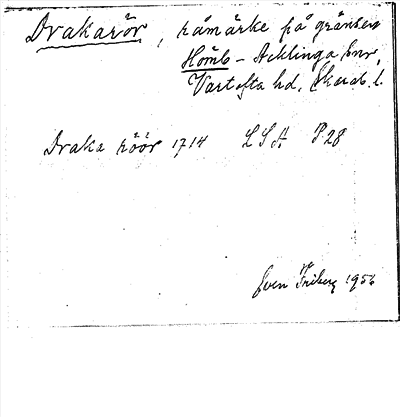 Drakarör, råmärke på gränsen
Hömb - Acklinga snr,
Vartofta hd, Skarab. l.
Draka röör 1714 LSA P28
Sven Friberg 1956